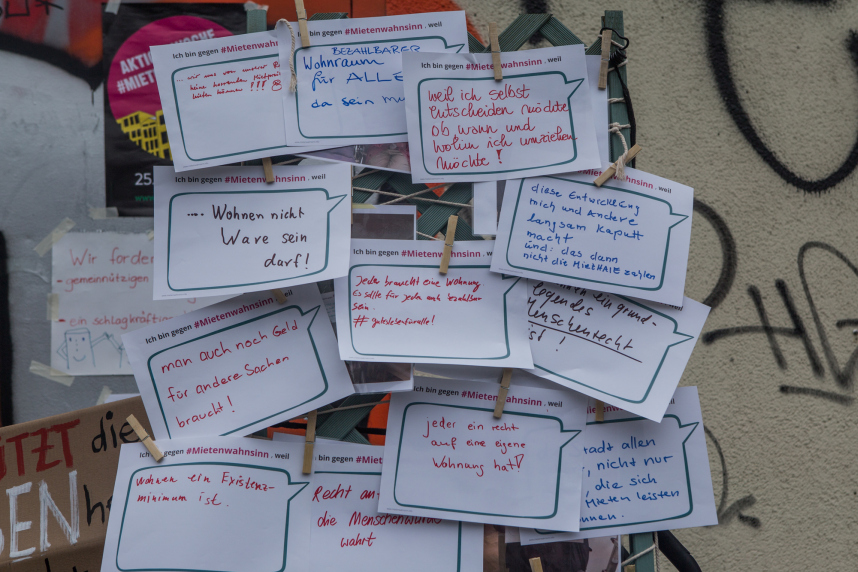 AKTI
#MIET
25.
Ich bin gegen #Mietenwahnsin
... wir uns von unserer
keine horrenden Mietpreise
leisten können !!!
BEZAHLBARER
Wohnraum
für ALLE
da sein mu
Ich bin gegen #Mietenwahnsinn, weil
weil ich selbst
entscheiden möchte
ob wann und
wohin ich umziehen
möchte!
Ich bin gegen #Mietenwahnsinn, weil
.... Wohnen nicht
Ware sein
darf!
#Mietenwahnsinn, weil
diese Entwicklung
mich und Andere
langsam kaputt
macht
und: das dann
nicht die MietHAIE zahlen
Wir forder
- gemeinnützigen
- ein schlagkräftig
Ich bin gegen #Mietenwahnsinn, w
Jeder braucht eine Wohnung
Es sollte für jede auch bezahlbar
sein.
#guteslebenfüralle!
ein grund-
legendes
Menschenrecht
!
Ich bin gegen #Mietenwahnsinn
man auch noch Geld
für andere Sachen
braucht!
Ich bin gegen #Mietenwahnsinn, weil
jeder ein recht
auf eine eigene
Wohnung hat!
tadt allen
, nicht nur
, die sich
Mieten leisten
nnen.
ÜTZT die
EN
Ich bin gegen #Mietenwahnsinn, weil
wohnen ein Existenz-
minimum ist.
bin gegen #Miete
Recht an
die Menschenwürde
wahrt